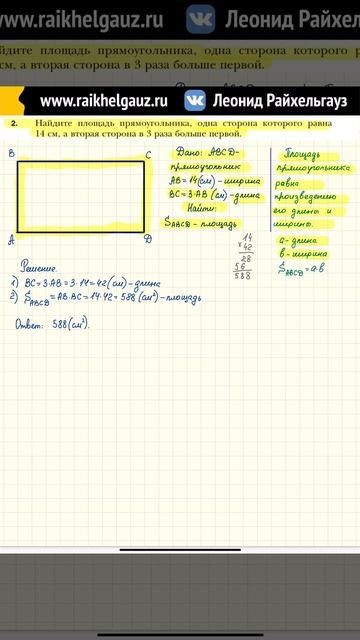 www.raikhelgauz.ru Леонид Райхельгауз
йдите площадь прямоугольника, одна сторона которого р
см, а вторая сторона в 3 раза больше первой.
www.raikhelgauz.ru Леонид Райхельгауз
2. Найдите площадь прямоугольника, одна сторона которого равна
14 см, а вторая сторона в 3 раза больше первой.
B C
A D
Дано: ABCD-
прямоугольник
AB=14(см)-ширина
BC=3·AB (см)-длина
Найти:
S ABCD - площадь
14
× 42
28
56
588
Площадь
прямоугольника
равна
произведению
его длины и
ширины.
a-длина
b-ширина
S ABCD = a·b
Решение.
1) BC=3·AB=3·14=42(см)-длина
2) S ABCD = AB·BC=14·42=588(см²)-площадь
Ответ: 588(см²).
www.raikhelgauz.ru Леонид Райхельгауз